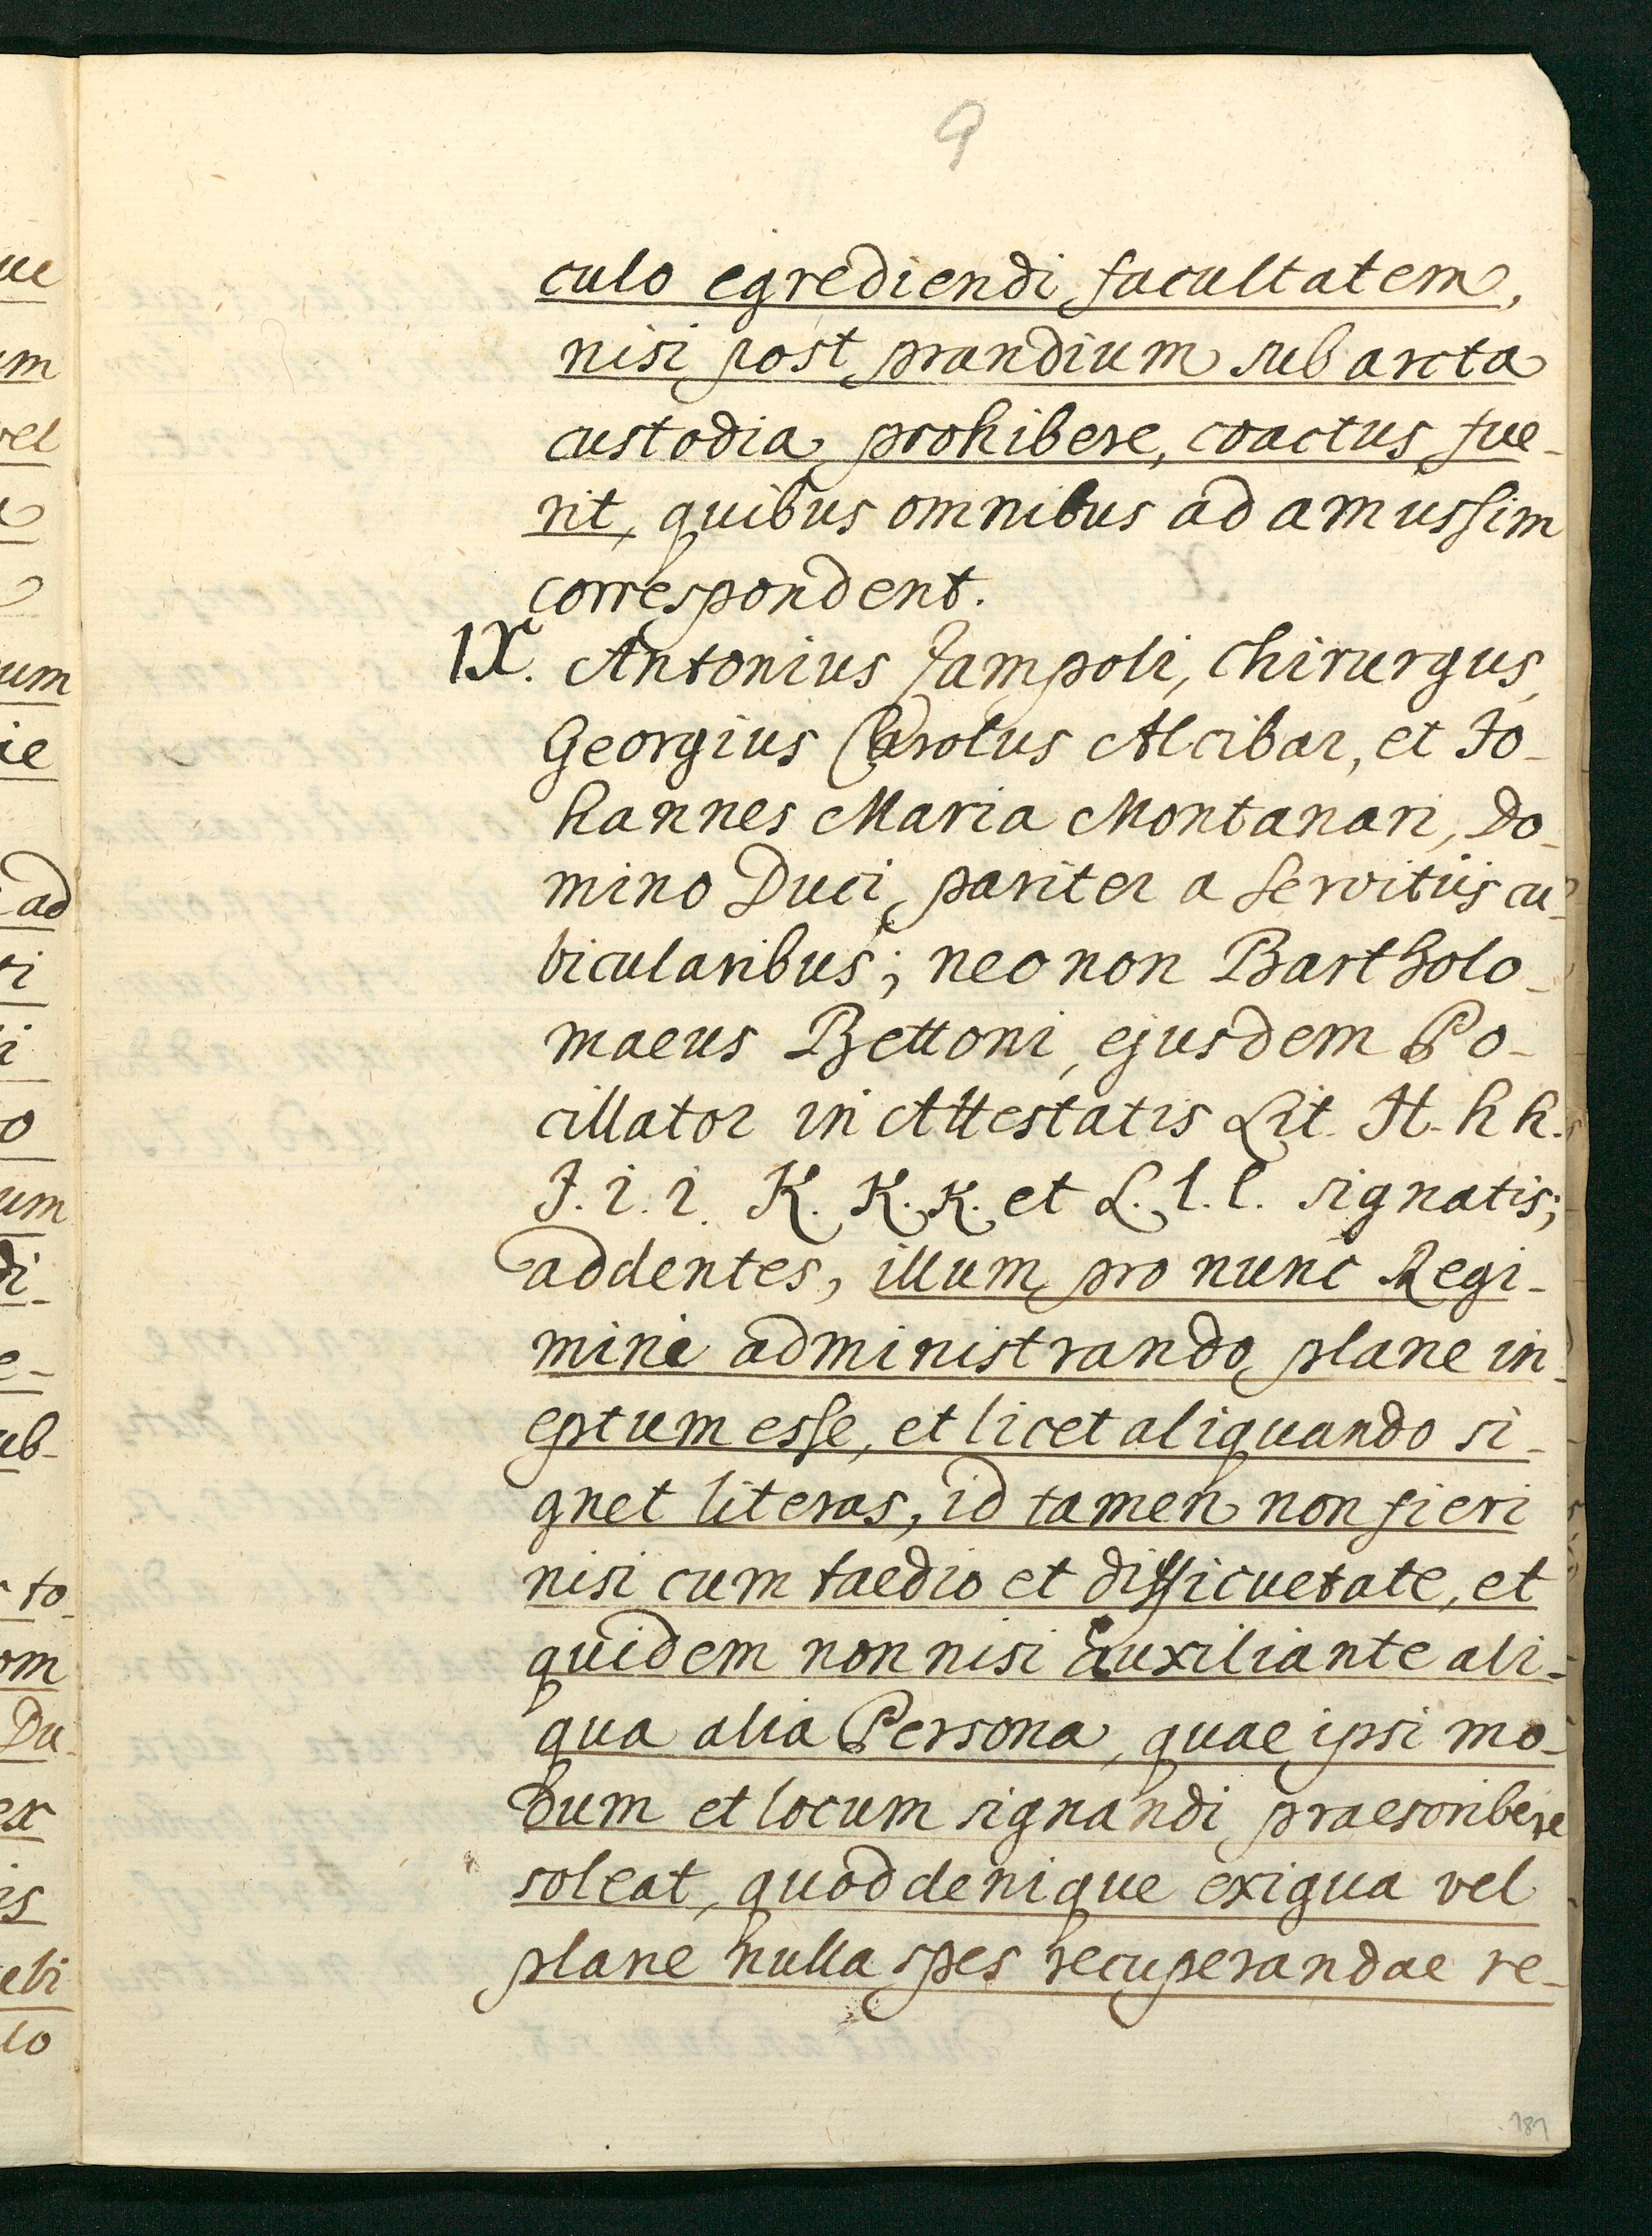 9
culo egrediendi facultatem,
nisi post prandium sub arcta
custodia prohibere, coactus fue-
rit, quibus omnibus ad amussim
correspondent.
IX. Antonius Jampoli, Chirurgus,
Georgius Carolus Alcibar, et Jo-
hannes Maria Montanari, Do-
mino Duci pariter a servitiis cu-
bicularibus; nec non Bartholo-
maeus Bettoni, ejusdem Po-
cillator in Attestatis Lit. H. h h.
J. i. i. K. K. K. et L. l. l. signatis;
addentes, illum pro nunc Regi-
mini administrando plane in-
eptum esse, et licet aliquando si-
gnet literas, id tamen non fieri
nisi cum taedio et difficultate, et
quidem non nisi auxiliante ali-
qua alia Persona, quae ipsi mo-
dum et locum signandi praescribere
soleat, quod denique exigua vel
plane nulla spes recuperandae re-
181